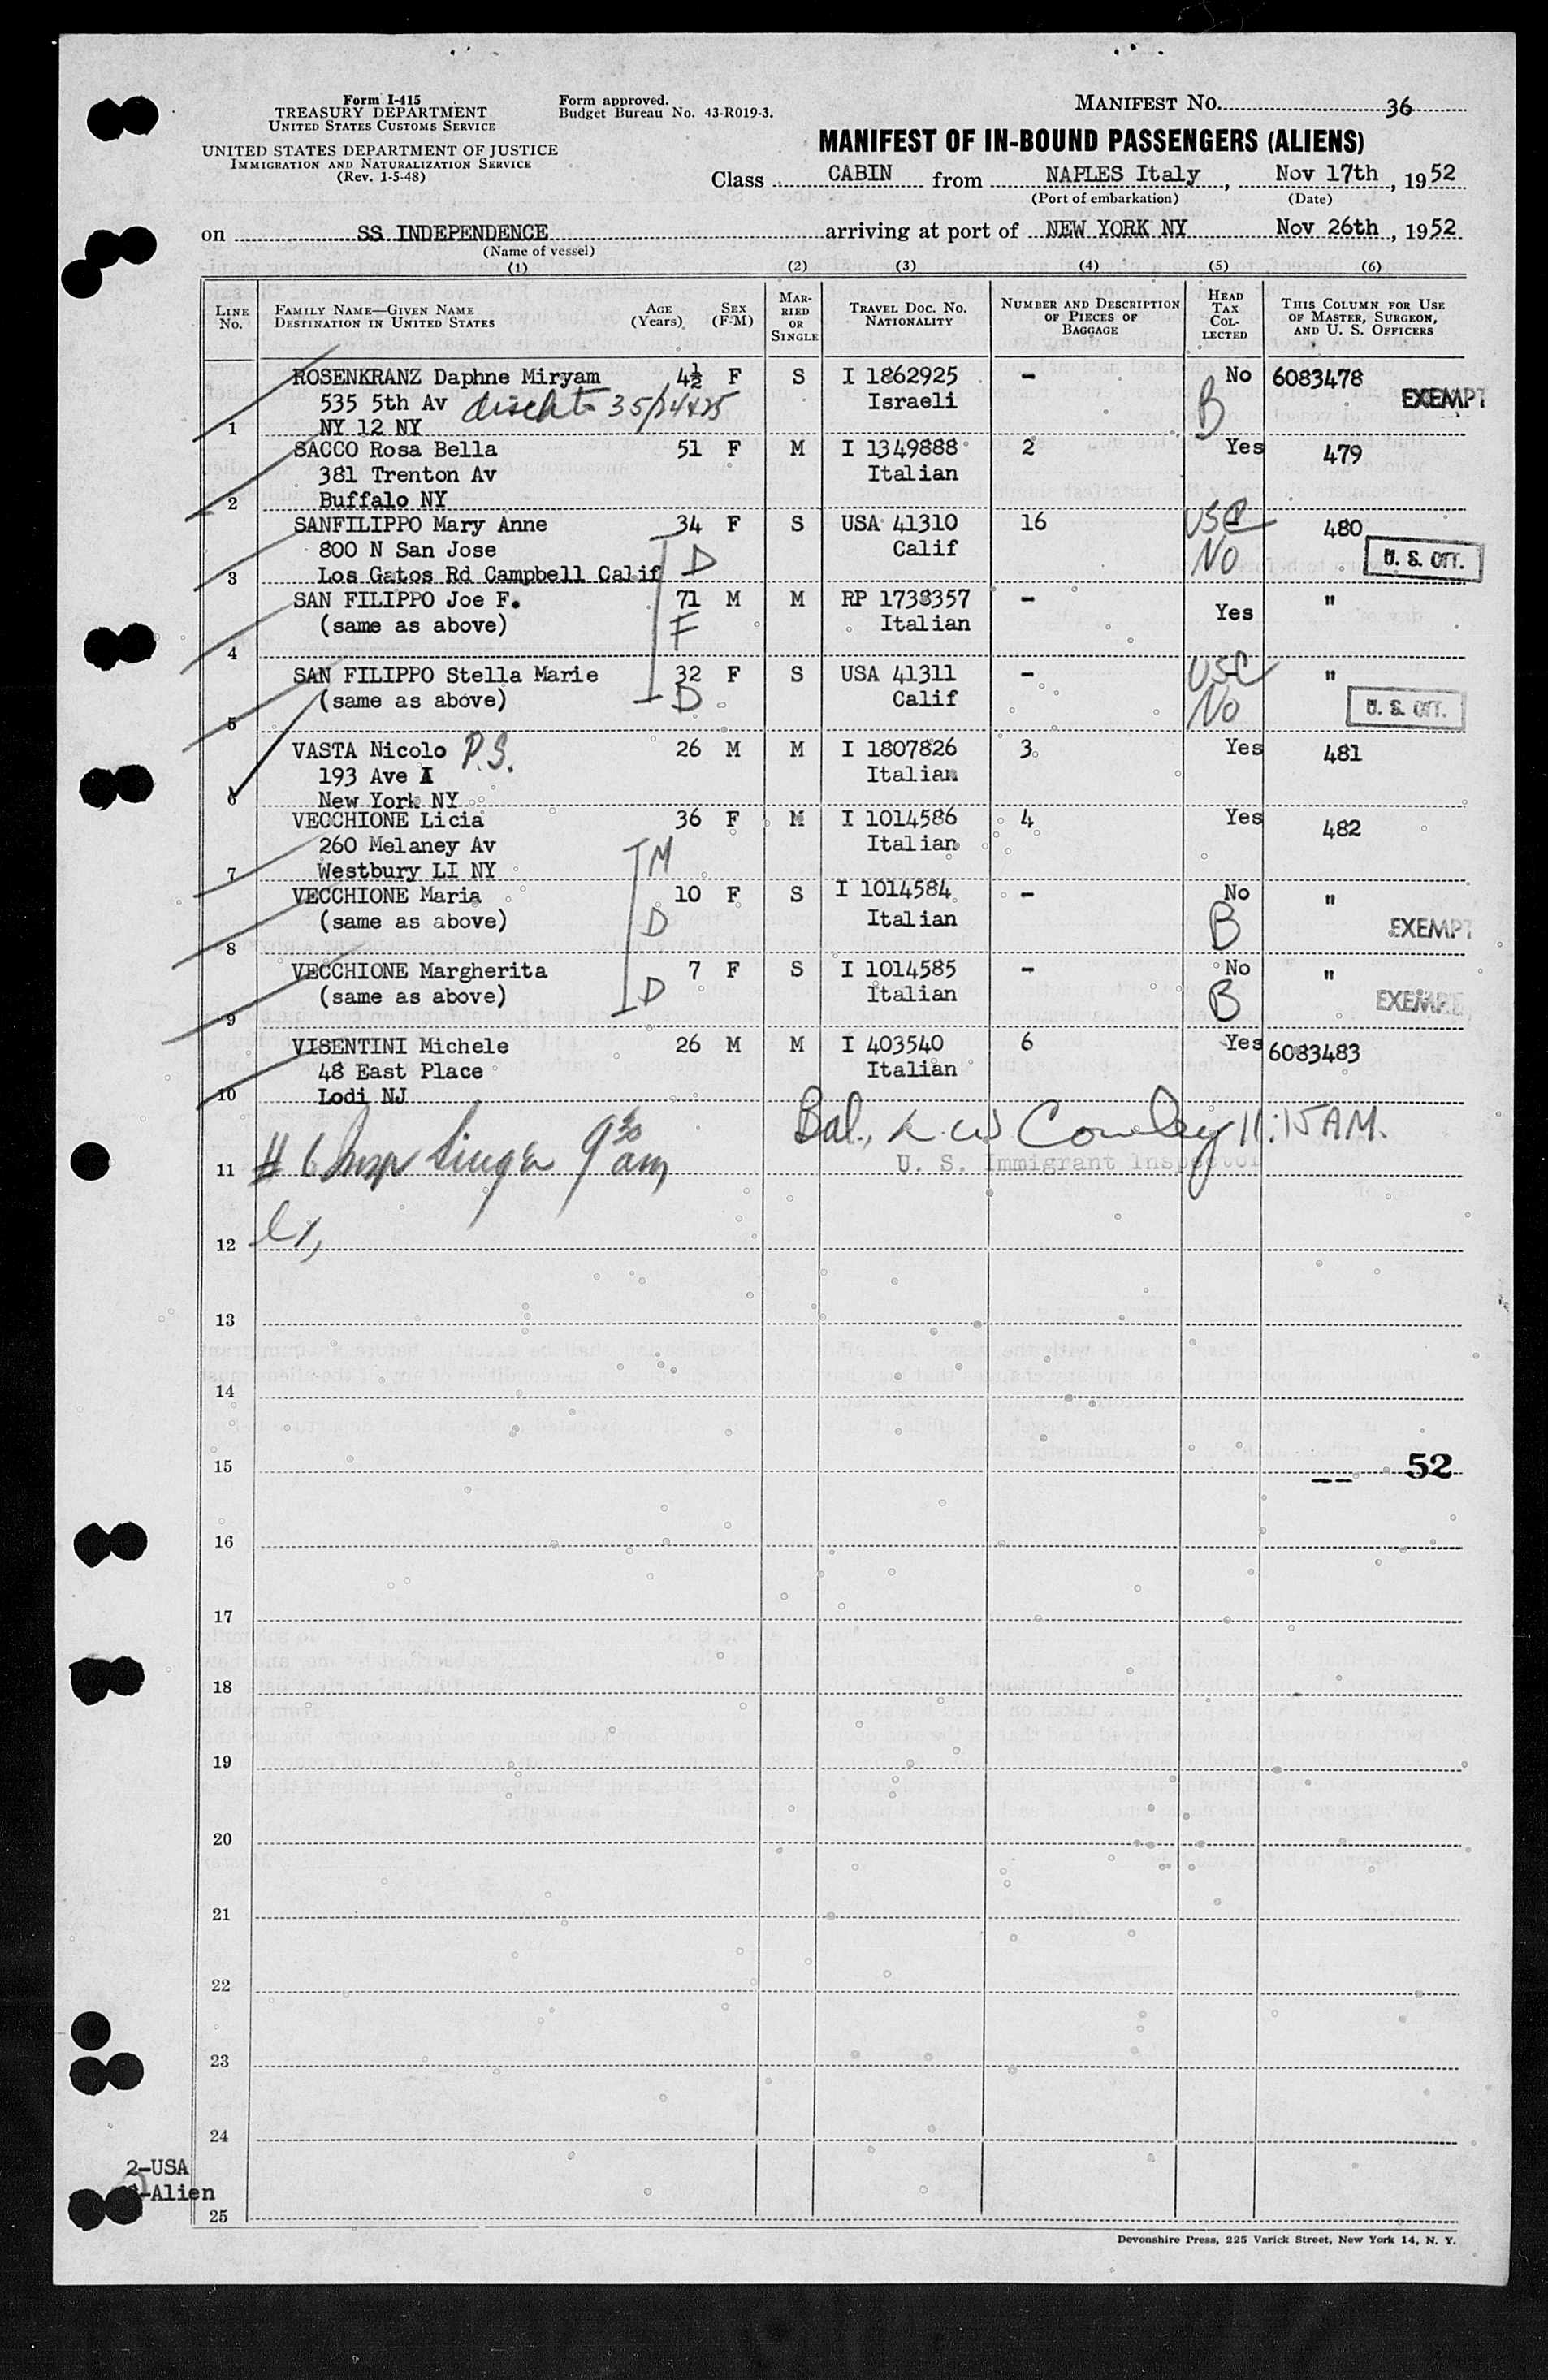 Form I-415
TREASURY DEPARTMENT
UNITED STATES CUSTOMS SERVICE
UNITED STATES DEPARTMENT OF JUSTICE
IMMIGRATION AND NATURALIZATION SERVICE
(Rev. 1-5-48)
Form approved.
Budget Bureau No. 43-R019-3.
MANIFEST NO. 36
MANIFEST OF IN-BOUND PASSENGERS (ALIENS)
Class CABIN from NAPLES Italy, Nov 17th, 1952
(Port of embarkation) (Date)
on SS INDEPENDENCE arriving at port of NEW YORK NY Nov 26th, 1952
(Name of vessel)
(1) (2) (3) (4) (5) (6)
LINE No. FAMILY NAME—GIVEN NAME DESTINATION IN UNITED STATES AGE (Years) SEX (F-M) MARRIED OR SINGLE TRAVEL DOC. NO. NATIONALITY NUMBER AND DESCRIPTION OF PIECES OF BAGGAGE HEAD TAX COLLECTED THIS COLUMN FOR USE OF MASTER, SURGEON, AND U. S. OFFICERS
ROSENKRANZ Daphne Miryam 4½ F S I 1862925 - No 6083478
535 5th Av Israeli B EXEMPT
1 NY 12 NY
SACCO Rosa Bella 51 F M I 1349888 2 Yes 479
381 Trenton Av Italian
2 Buffalo NY
SANFILIPPO Mary Anne 34 F S USA 41310 16 USC 480
800 N San Jose D Calif No U. S. CIT.
3 Los Gatos Rd Campbell Calif
SAN FILIPPO Joe F. 71 M M RP 1738357 - Yes "
(same as above) F Italian
4
SAN FILIPPO Stella Marie 32 F S USA 41311 - USC "
(same as above) D Calif No U. S. CIT.
5
VASTA Nicolo P.S. 26 M M I 1807826 3 Yes 481
193 Ave A Italian
6 New York NY
VECCHIONE Licia 36 F M I 1014586 4 Yes 482
260 Melaney Av M Italian
7 Westbury LI NY
VECCHIONE Maria 10 F S I 1014584 - No "
(same as above) D Italian B EXEMPT
8
VECCHIONE Margherita 7 F S I 1014585 - No "
(same as above) D Italian B EXEMPT
9
VISENTINI Michele 26 M M I 403540 6 Yes 6083483
48 East Place Italian
10 Lodi NJ
Bal., 11:15 AM.
11 # 6 Insp Singer 9 30 am
U. S. Immigrant Inspector
12
13
14
15 52
16
17
18
19
20
21
22
23
24
2-USA
-Alien
25
Devonshire Press, 225 Varick Street, New York 14, N. Y.